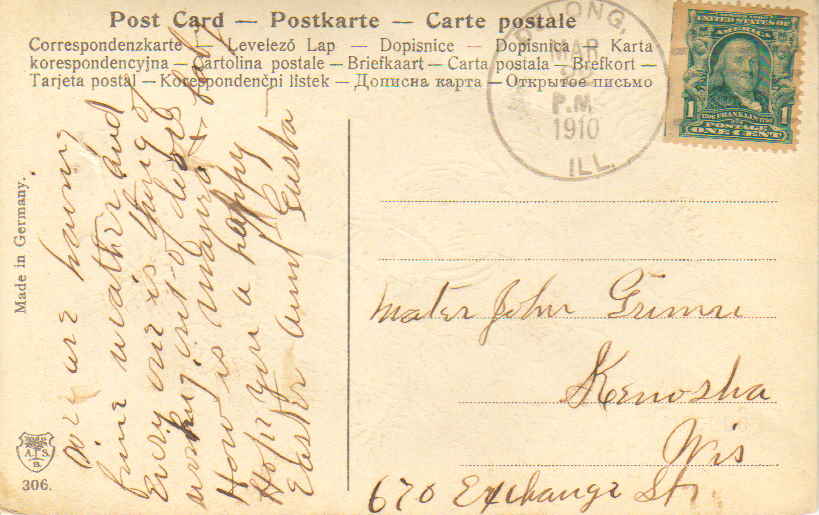 Post Card — Postkarte — Carte postale
Correspondenzkarte — Levelező Lap — Dopisnice — Dopisnica — Karta
korespondencyjna — Cartolina postale — Briefkaart — Carta postala — Brefkort —
Tarjeta postal — Korespondenční listek — Дописна карта — Открытое письмо
DELONG,
MAR
P.M.
1910
ILL.
UNITED STATES OF
AMERICA
1706 FRANKLIN 1790
POSTAGE
1 ONE CENT 1
Made in Germany.
A. S.
B.
306.
We are having
fine weather and
Every one is thing of
working out-of doors
How is mamma & baby
Hope you a happy
Easter aunt Gusta
Mater John Grimm
Kenosha
Wis
670 Exchange St.